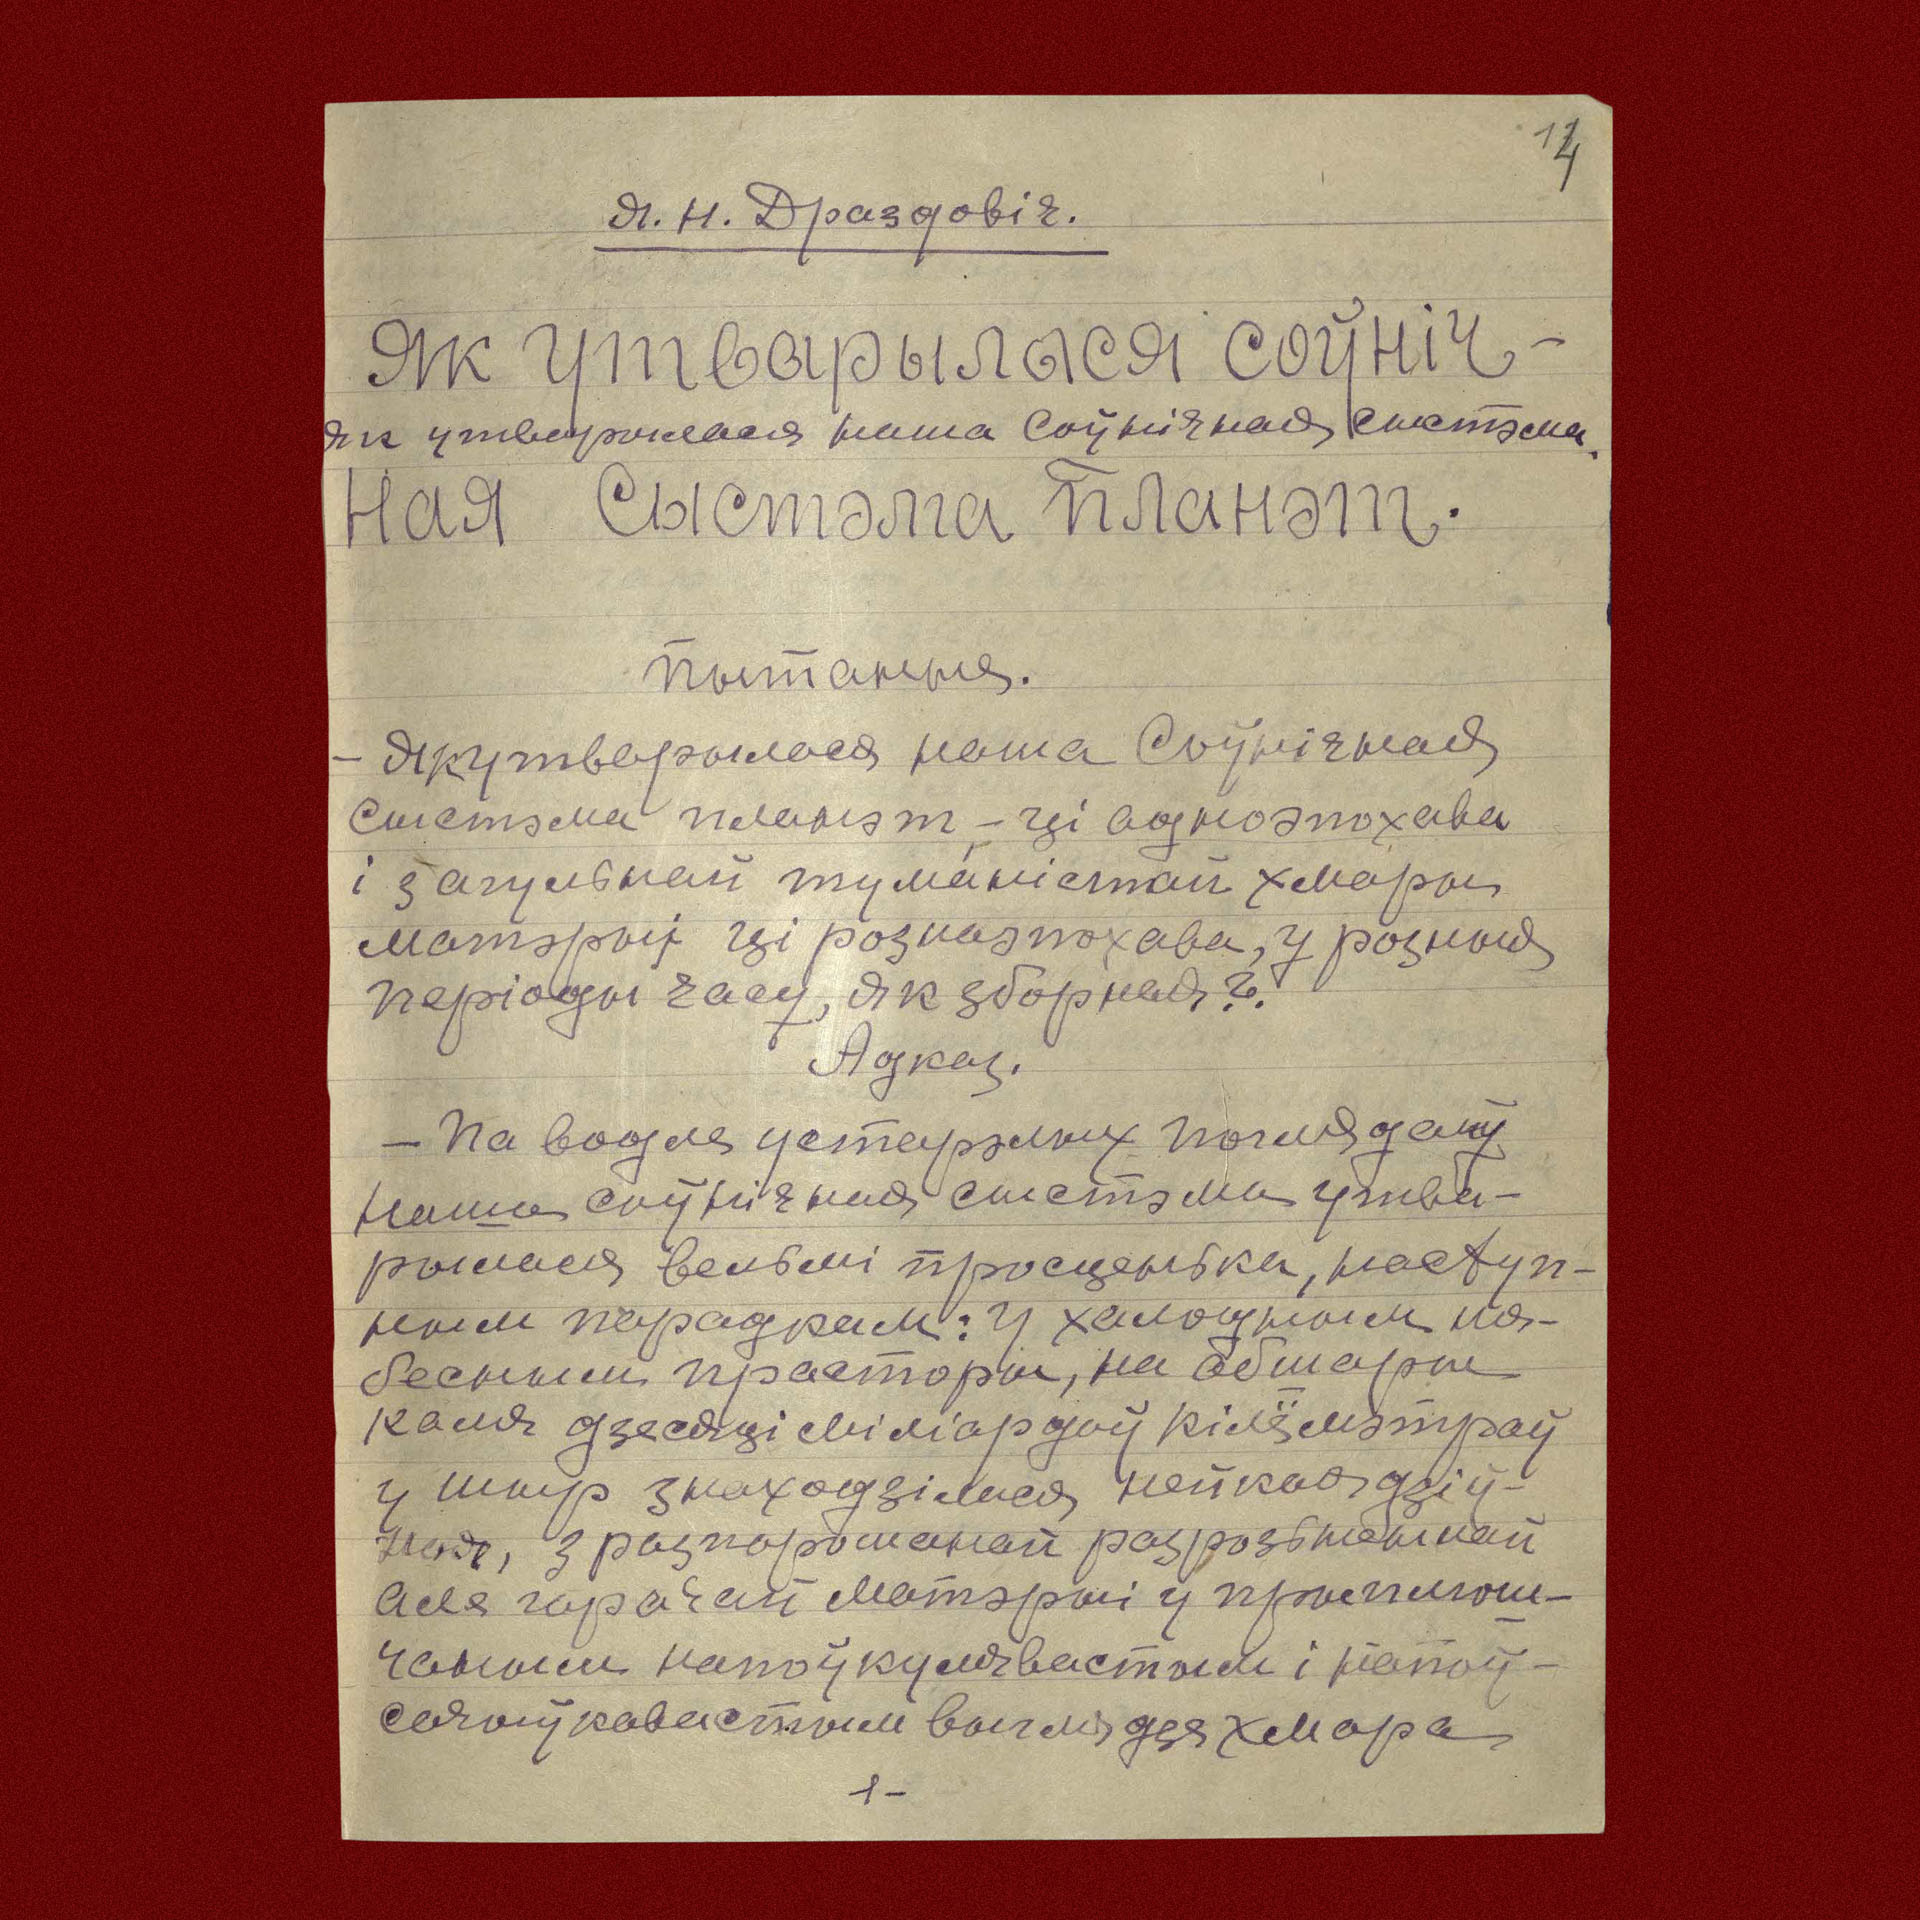 14
Я. Н. Драздовіч.
Як утварылася соўніч-
як утварылася наша Соўнічная сыстэма.
ная Сыстэма планэт.
Пытаньня.
- Як утварылася наша Соўнічная
сыстэма планэт - ці аднаэпохава
і з агульнай туманістай хмары
матэрыі ці рознаэпохава, у розныя
періоды часу, як зборная?.
Адказ.
- Па водля устарэлых поглядаў
наша соўнічная сыстэма утва-
рылася вельмі просценька, наступ-
ным парадкам: У халодным ня-
бесным прасторы, на абшары
каля дзесяці міліардоў кілёмэтраў
у шыр знаходзілася нейкая дзіў-
ная, з распорошанай разрозьненай
але гарачай матэрыі у прыплюш-
чаным напоўкулявастым і напоў-
сачоўкавастым выглядзя хмара
1-